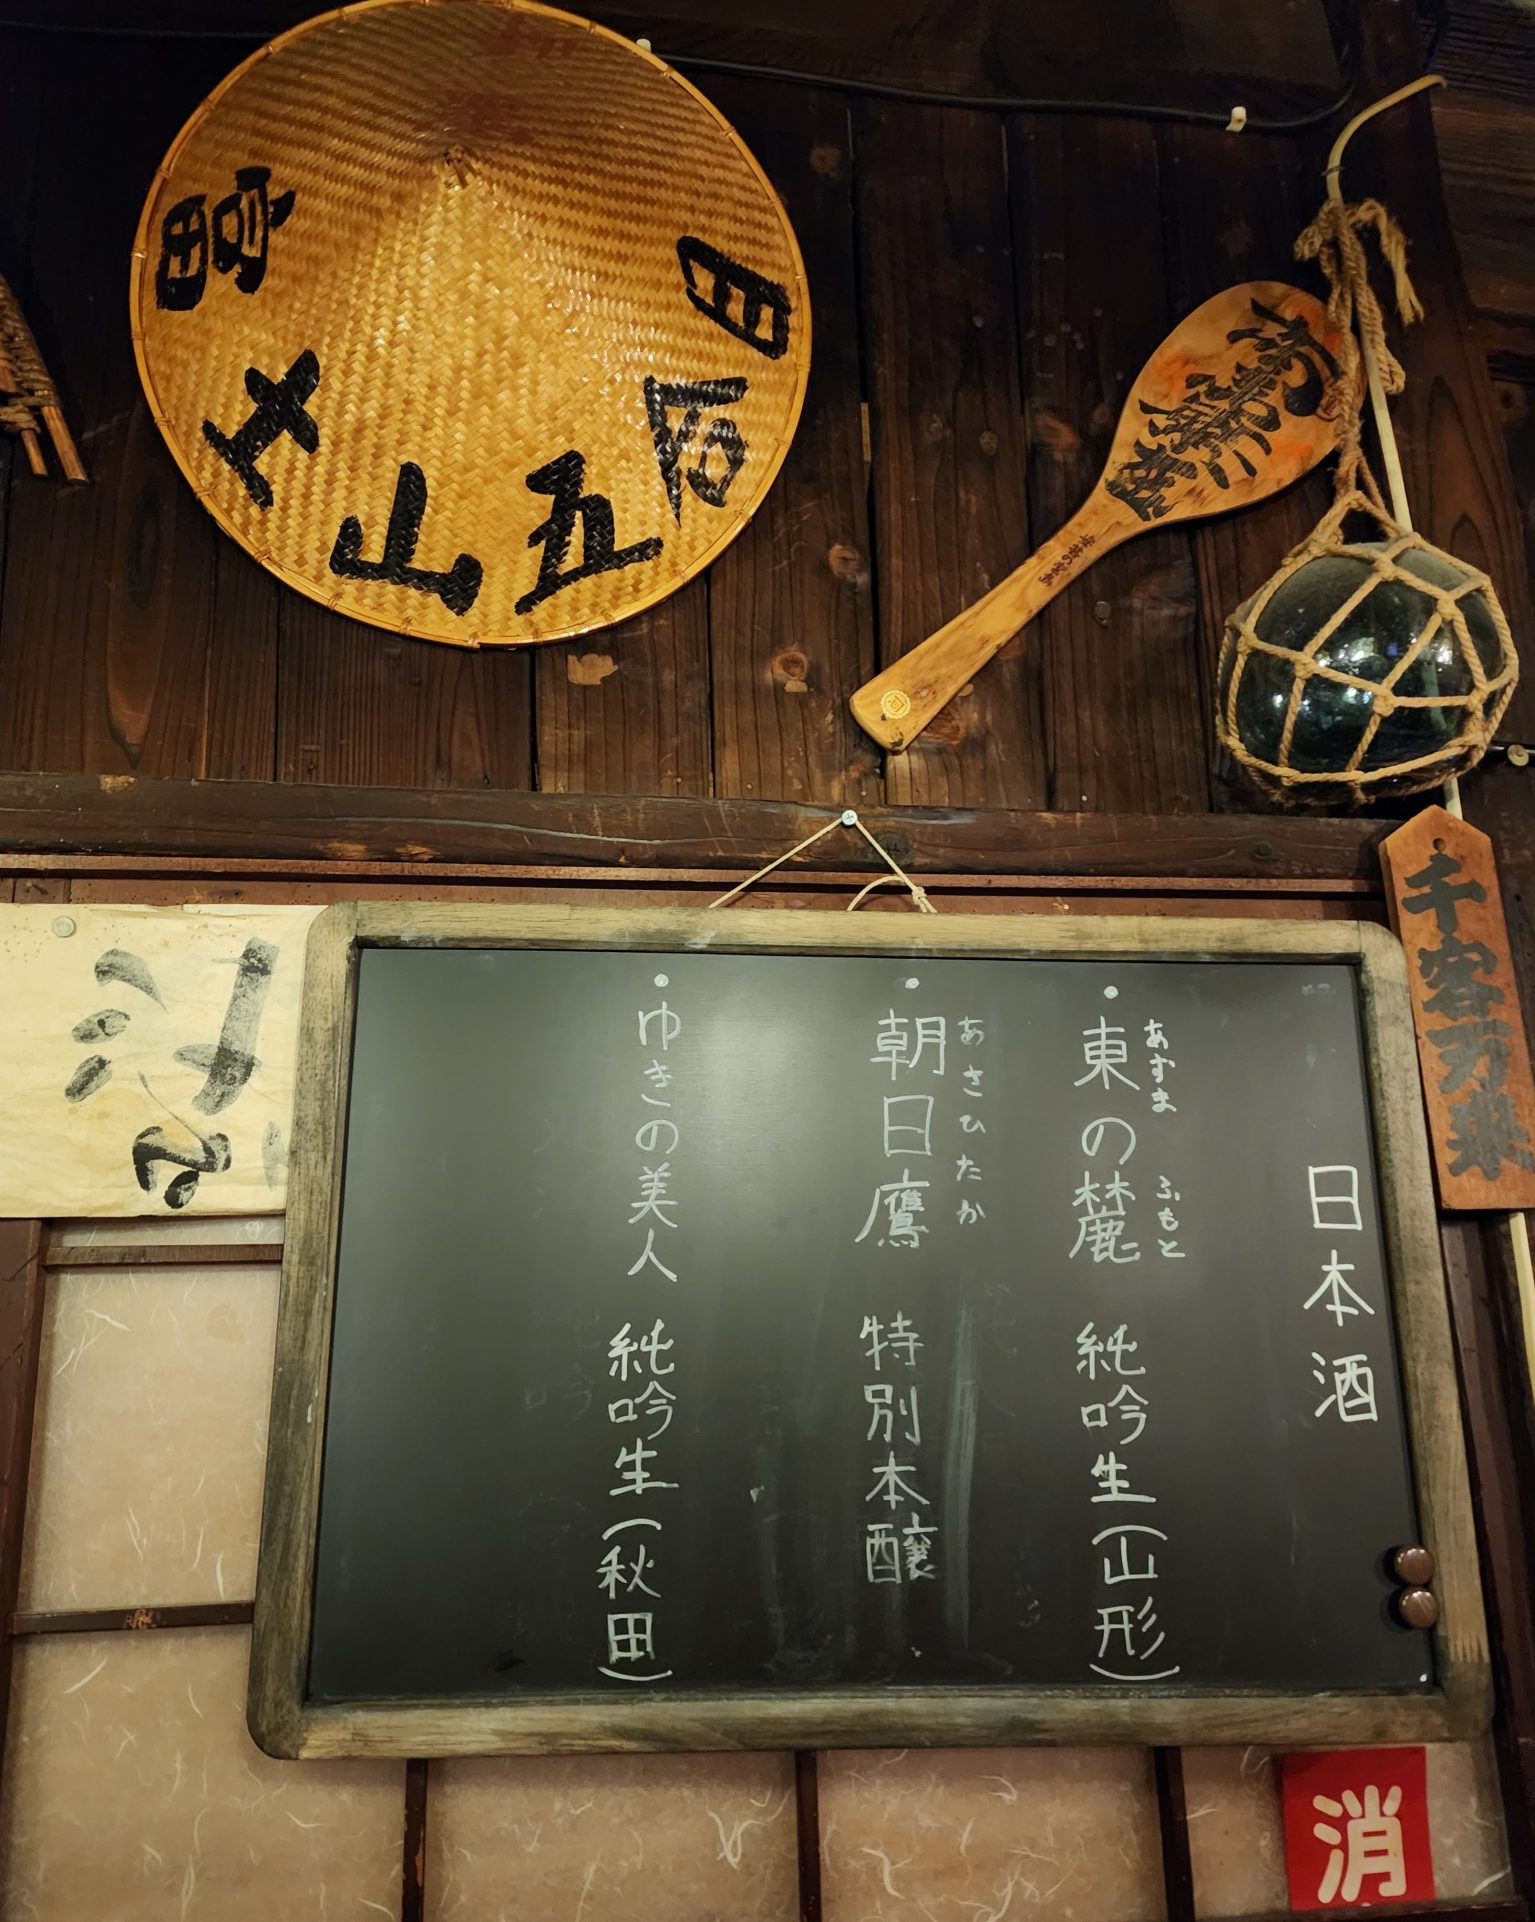 富士山五合目
千客万来
日本酒
・東の麓 純吟生(山形)
あずま ふもと
・朝日鷹 特別本醸
あさひたか
・ゆきの美人 純吟生(秋田)
消